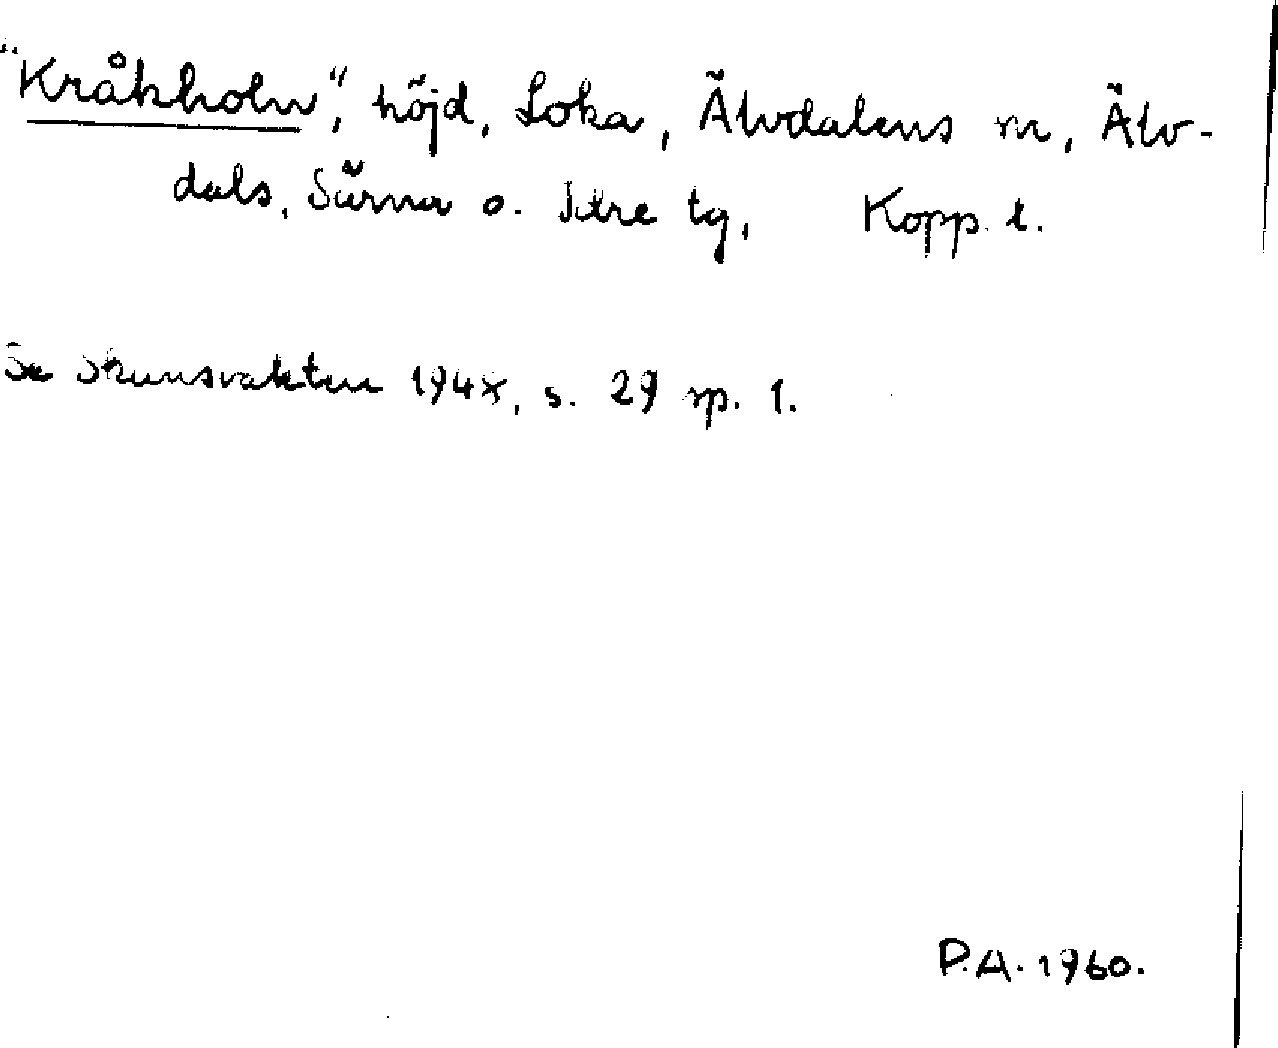 "Kråkholn", höjd, Loka, Älvdalens sn, Älv-
dals, Särna o. Idre tg, Kopp. l.
Se Skansvakten 194x, s. 29 sp. 1.
P.A. 1960.